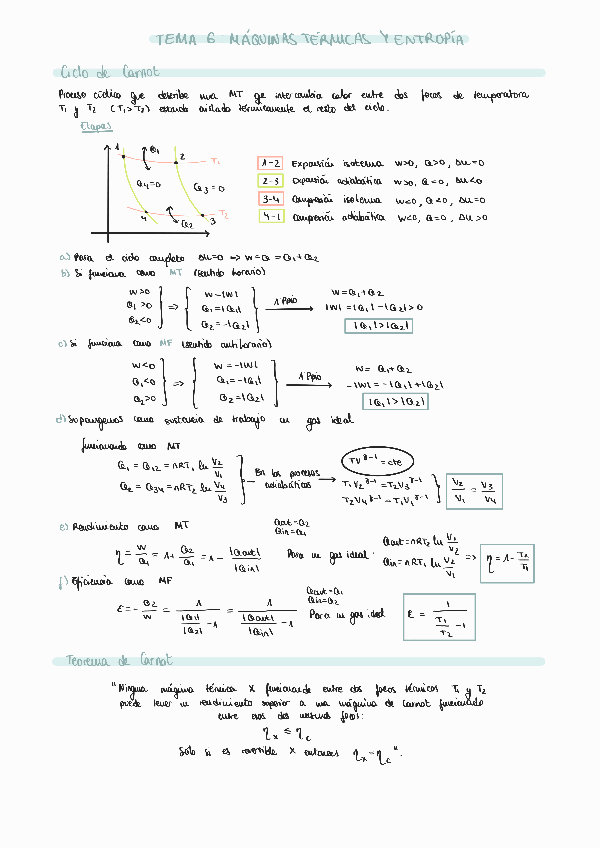 TEMA 6 MÁQUINAS TÉRMICAS Y ENTROPÍA
Ciclo de Carnot
Proceso cíclico que describe una MT que intercambia calor entre dos focos de temperatura
T₁ y T₂ (T₁>T₂) estando aislado térmicamente el resto del ciclo.
Etapas
1 Q₁ 2 T₁
Q₄=0 Q₃=0
4 Q₂ 3 T₂
1-2 Expansión isoterma W>0, Q>0, ΔU=0
2-3 Expansión adiabática W>0, Q=0, ΔU<0
3-4 Compresión isoterma W<0, Q<0, ΔU=0
4-1 Compresión adiabática W<0, Q=0, ΔU>0
a) Para el ciclo completo ΔU=0 => W=Q=Q₁+Q₂
b) Si funciona como MT (sentido horario)
W>0 W=|W| W=Q₁+Q₂
Q₁>0 => Q₁=|Q₁| 1ᵉʳ Ppio → |W|=|Q₁|-|Q₂|>0
Q₂<0 Q₂=-|Q₂| |Q₁|>|Q₂|
c) Si funciona como MF (sentido antihorario)
W<0 W=-|W| W=Q₁+Q₂
Q₁<0 => Q₁=-|Q₁| 1ᵉʳ Ppio → -|W|=-|Q₁|+|Q₂|
Q₂>0 Q₂=|Q₂| |Q₁|>|Q₂|
d) Supongamos como sustancia de trabajo un gas ideal
funcionando como MT
TV^γ-1=cte
Q₁=Q₁₂=nRT₁ ln V₂/V₁ En los procesos T₁V₂^γ-1=T₂V₃^γ-1 V₂/V₁=V₃/V₄
Q₂=Q₃₄=nRT₂ ln V₄/V₃ adiabáticos T₂V₄^γ-1=T₁V₁^γ-1
e) Rendimiento como MT Qout=Q₂
Qin=Q₁
η=W/Q₁=1+Q₂/Q₁=1-|Qout|/|Qin| Para un gas ideal: Qout=nRT₂ ln V₁/V₂ => η=1-T₂/T₁
Qin=nRT₁ ln V₂/V₁
f) Eficiencia como MF Qout=Q₁
Qin=Q₂
ε=-Q₂/W=1/(|Q₁|/|Q₂|-1)=1/(|Qout|/|Qin|-1) Para un gas ideal ε=1/(T₁/T₂-1)
Teorema de Carnot
"Ninguna máquina térmica X funcionando entre dos focos térmicos T₁ y T₂
puede tener un rendimiento superior a una máquina de Carnot funcionando
entre esos dos mismos focos:
η_x ≤ η_c
Solo si es reversible X entonces η_x=η_c".